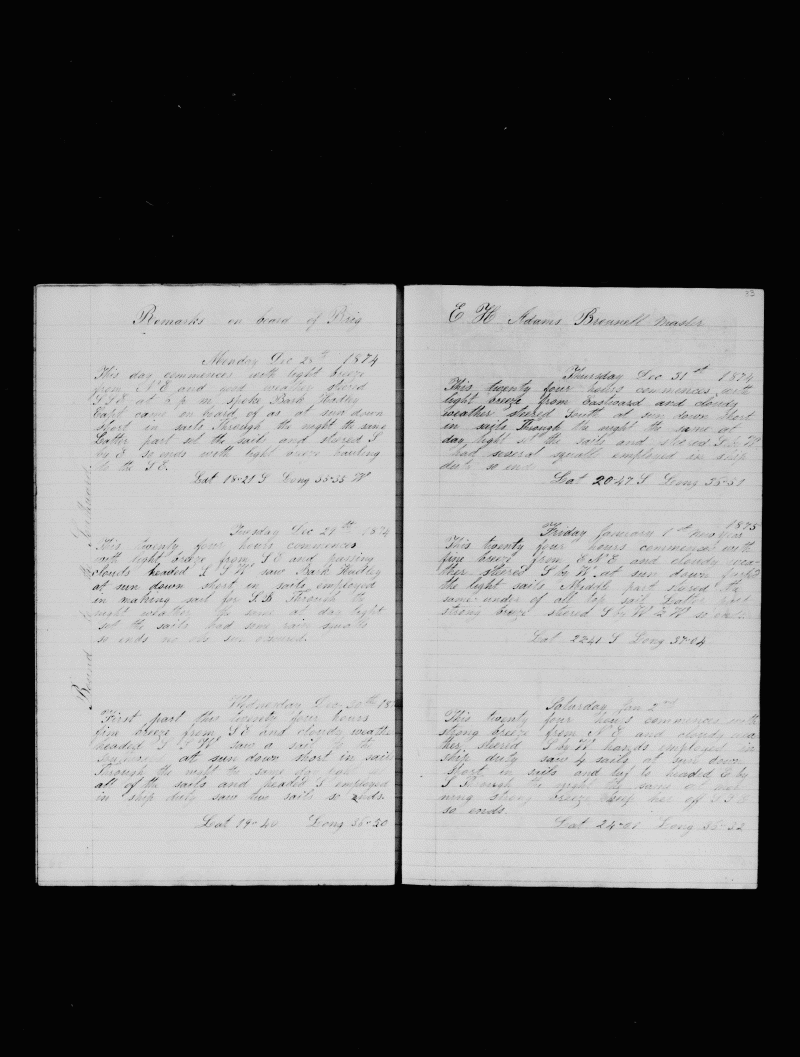 Remarks on board of Brig
Monday Dec 28th 1874
This day commences with light breeze
from NE and good weather stered
SSE at 2 p m spoke Bark Hadley
Capt came on board of us at sun down
short in sails Through the night the same
Latter part set the sails and stered S
by E so ends with light breeze hauling
to the SE
Lat 18-21 S Long 35-35 W
Tuesday Dec 29th 1874
This twenty four hours commences
with light breeze from SE and passing
clouds headed SSW saw Bark Hadley
at sun down short in sails employed
in making sail for Through the
night weather the same at day light
set the sails had some rain squalls
so ends no obs
Round
Wednesday Dec 30th 18
First part this twenty four hours
fine breeze from SE and cloudy weather
headed SSW saw a sail to the
at sun down short in sail
Through the night the same day
all of the sails and headed S employed
in ship duty saw two sails so ends.
Lat 19-40 Long 36-20
33
E H Adams Brownell master
Thursday Dec 31st 1874
This twenty four hours commences with
light breeze from Eastward and cloudy
weather stered South at sun down short
in sails Through the night the same at
day light set the sails and stered S by W
had several squalls employed in ship
duty so ends
Lat 20-47 S Long 36-51
1875
Friday January 1st New Year
This twenty four hours commences with
fine breeze from ENE and cloudy wea-
ther stered S by W at sun down furled
the light sails Middle part stered the
same under of all top sail Latter part
strong breeze stered S by W ½ W so ends
Lat 22-41 S Long 37-04
Saturday Jan 2nd
This twenty four hours commences with
strong breeze from NE and cloudy wea-
ther stered S by W hands employed in
ship duty saw 4 sails at sun down
short in sails and headed E by
S Through the night the same at mor-
ning strong breeze kept her off SSE
so ends.
Lat 24-01 Long 36-32